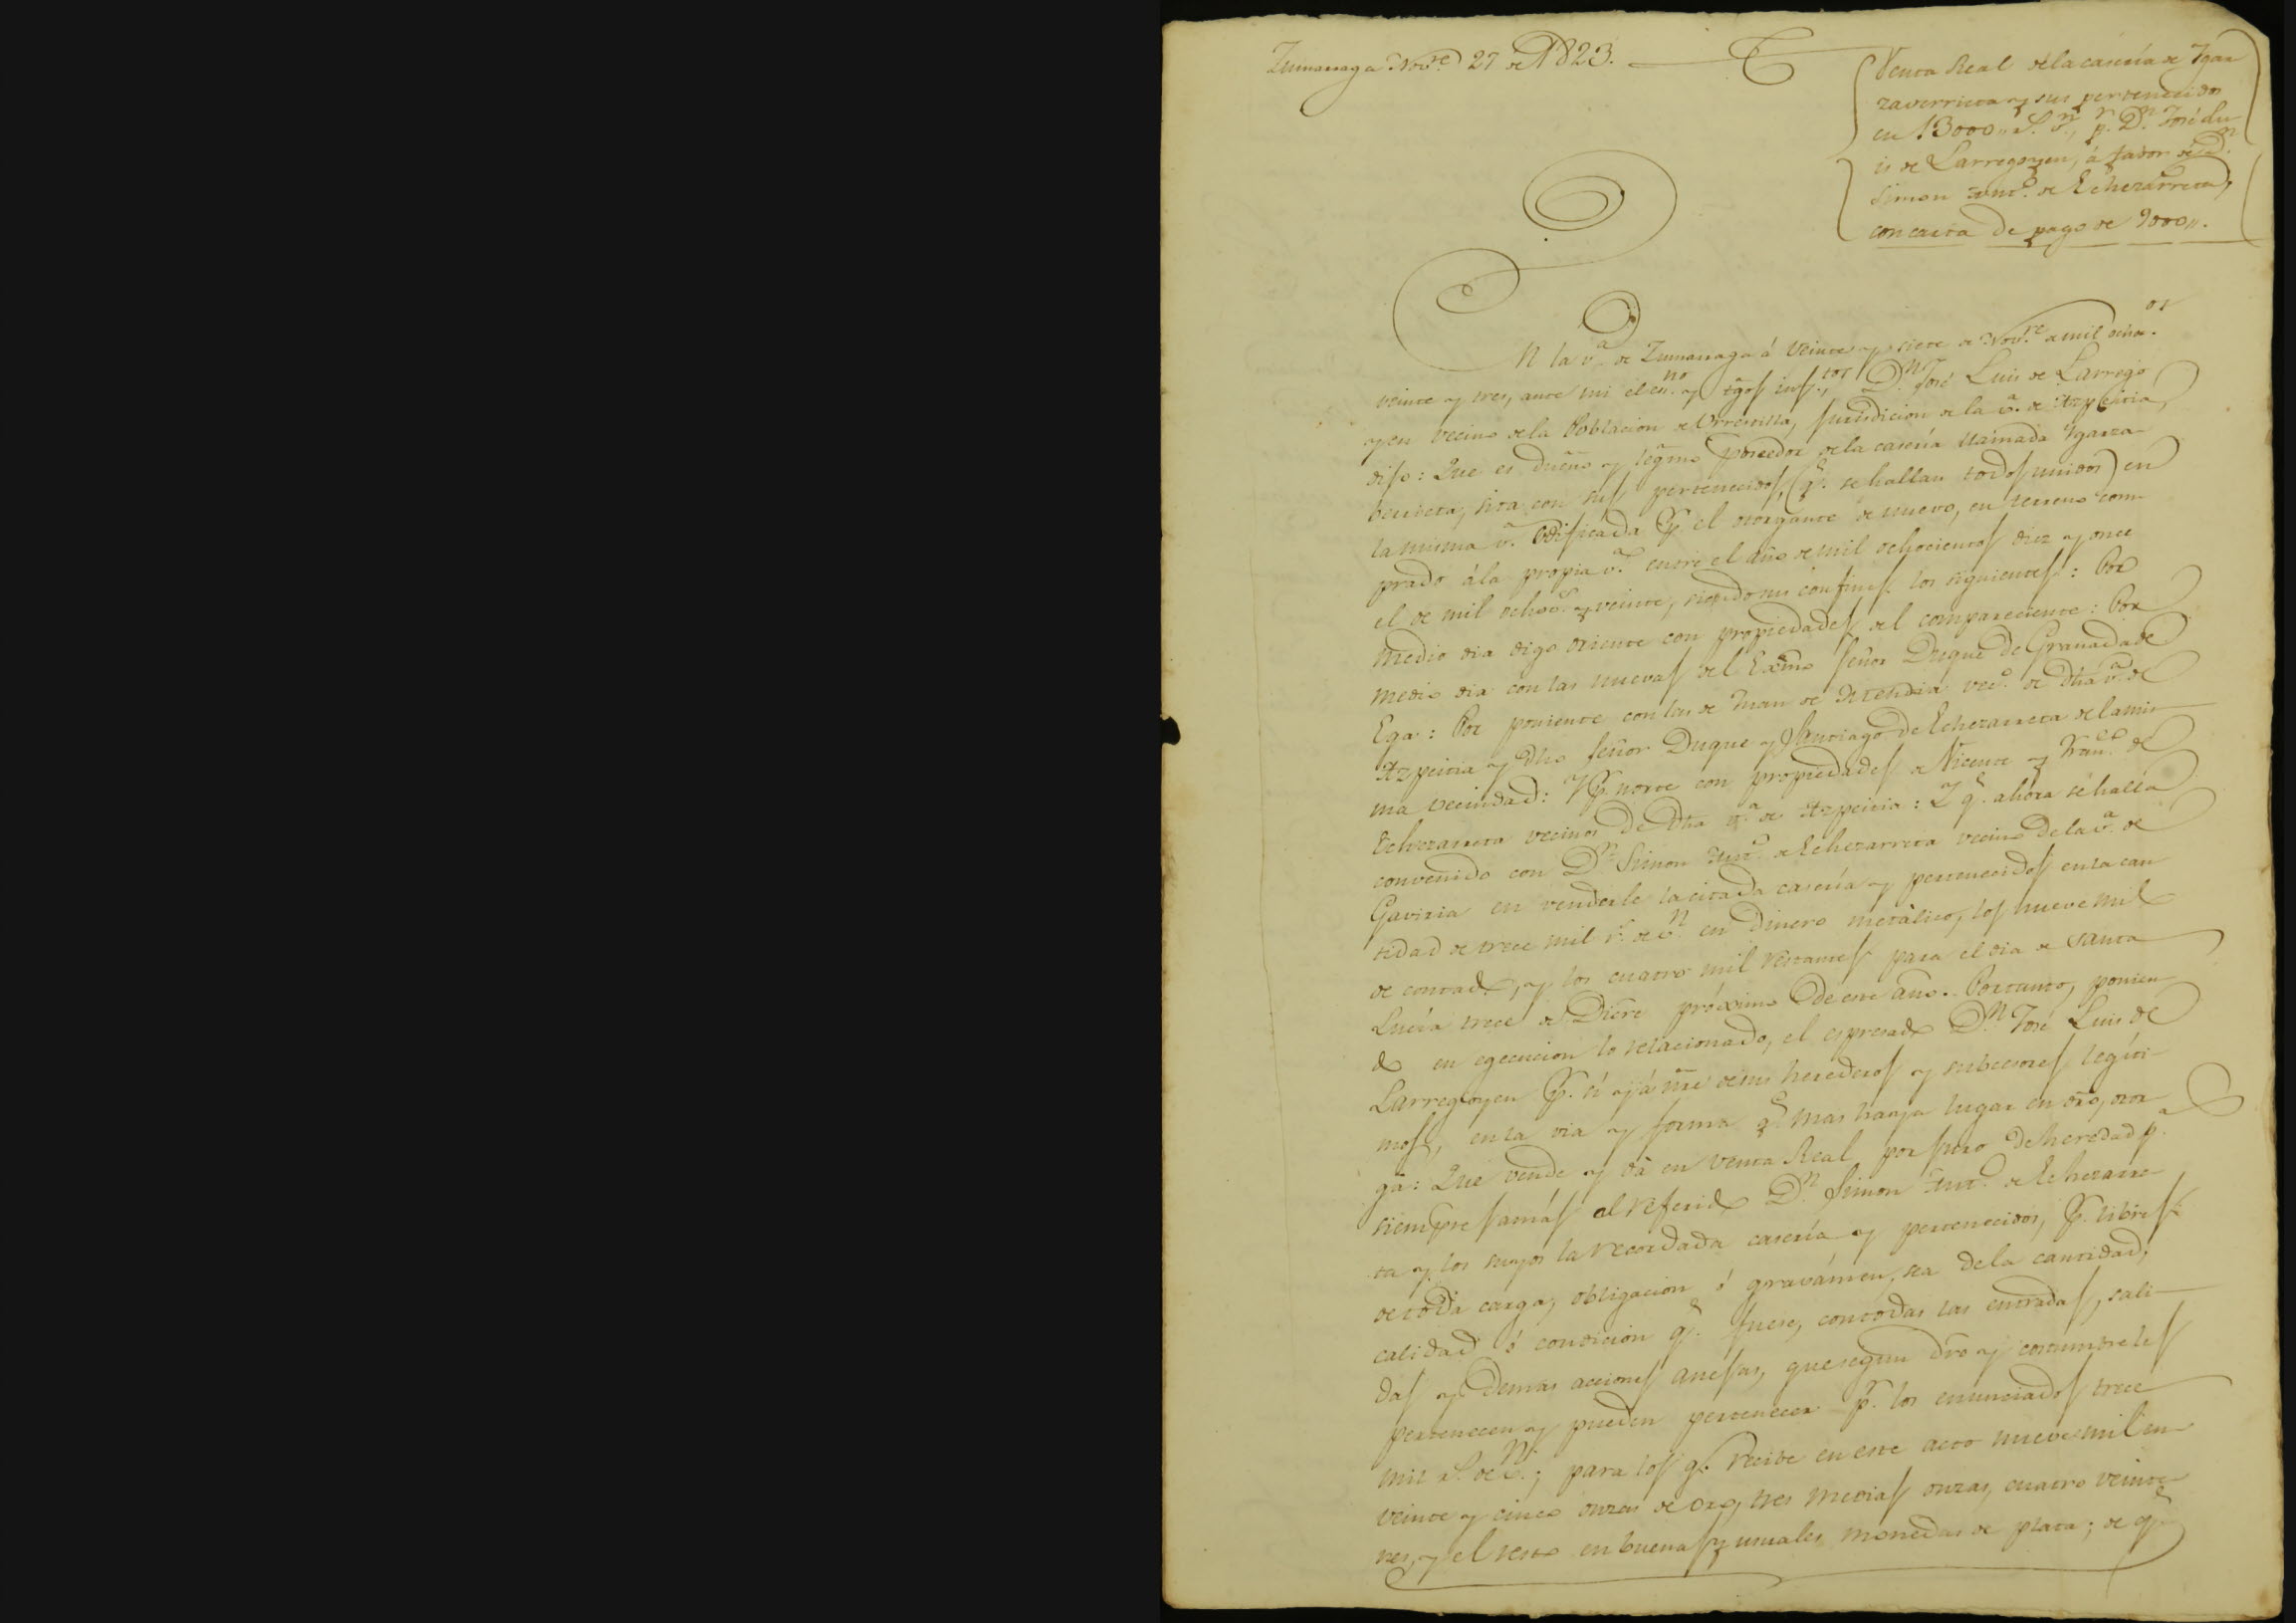 Zumarraga Nov.re 27 de 1823.
Venta Real de la casería de Ygar
zaverrieta y sus pertenecidos
en 13000,, r.s v.n, p.r D.n José Lu-
is de Larregoyen, á fabor de D.n
Simon Ant.o de Echezarreta,
con carta de pago de 9000,,.
N la v.a de Zumarraga á veinte y siete de Nov.re de mil ocho.os
veinte y tres, ante mi el es.no y tgos infr.tos, D.n José Luis de Larrego
yen vecino de la Poblacion de Urrestilla, jurisdicion de la v.a de Azpeitia,
dijo: Que es dueño y legmo poseedor de la casería llamada Ygarza-
berrieta, sita con sus pertenecidos, (q.e se hallan todos unidos) en
la misma v.a edificada p.r el otorgante de nuevo, en terreno com-
prado á la propia v.a entre el año de mil ochocientos diez y once
el de mil ochos.s y veinte, siendo sus confines los siguientes: Por
medio dia digo oriente con propiedades del compareciente: Por
medio dia con las nuevas del Exmo Señor Duque de Granada de
Ega: Por poniente con las de Juan de Atendia vec.o de dha v.a de
Azpeitia y dho Señor Duque y Santiago de Echezarreta de la mis-
ma vecindad: Y p.r norte con propiedades de Vicente y Fran.co de
Echezarreta vecinos de dha v.a de Azpeitia: Y q.e ahora se halla
convenido con D.n Simon Ant.o de Echezarreta vecino de la v.a de
Gaviria en venderle la citada casería y pertenecidos en la can
tidad de trece mil r.s de v.n en dinero metálico, los nueve mil
de contado, y los cuatro mil restantes para el dia de Santa
Lucía trece de Dicre próximo de este año. Por tanto, ponien-
do en egecucion lo relacionado, el espresado D.n José Luis de
Larregoyen p.r sí y á nre de sus herederos y subcesores legíti-
mos, en la via y forma q.e mas haya lugar en dro, otor
ga: Que vende y dá en venta Real por juro de heredad p.a
siempre jamás al referido D.n Simon Ant.o de Echezarre-
ta y los suyos la recordada casería y pertenecidos, p.r libres
de toda carga, obligacion ó gravámen, sea de la cantidad,
calidad ó condicion q.e fuese, con todas las entradas, sali-
das y demas acciones anejas, que segun dro y costumbre les
pertenecen y pueden pertenecer p.r los enunciados trece
mil r.s de v.n; para los q.e recibe en este acto nueve mil en
veinte y cinco onzas de oro, tres medias onzas, cuatro veinte-
nes, y el resto en buenas y usuales monedas de plata; de q.e